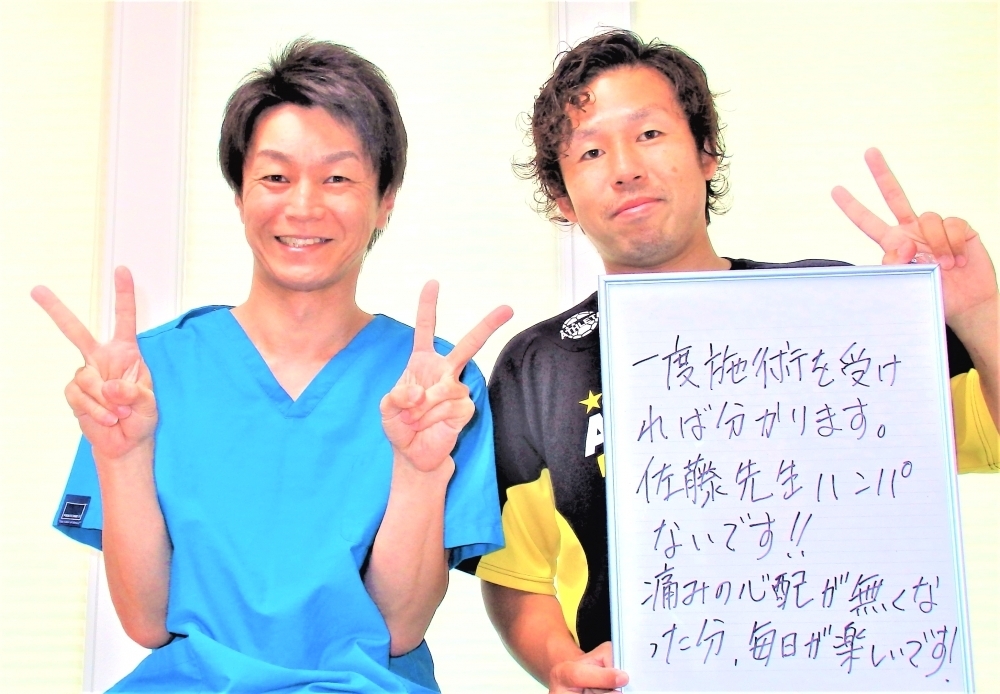 一度施術を受け
れば分かります。
佐藤先生ハンパ
ないです!!
痛みの心配が無くな
った分、毎日が楽しいです!